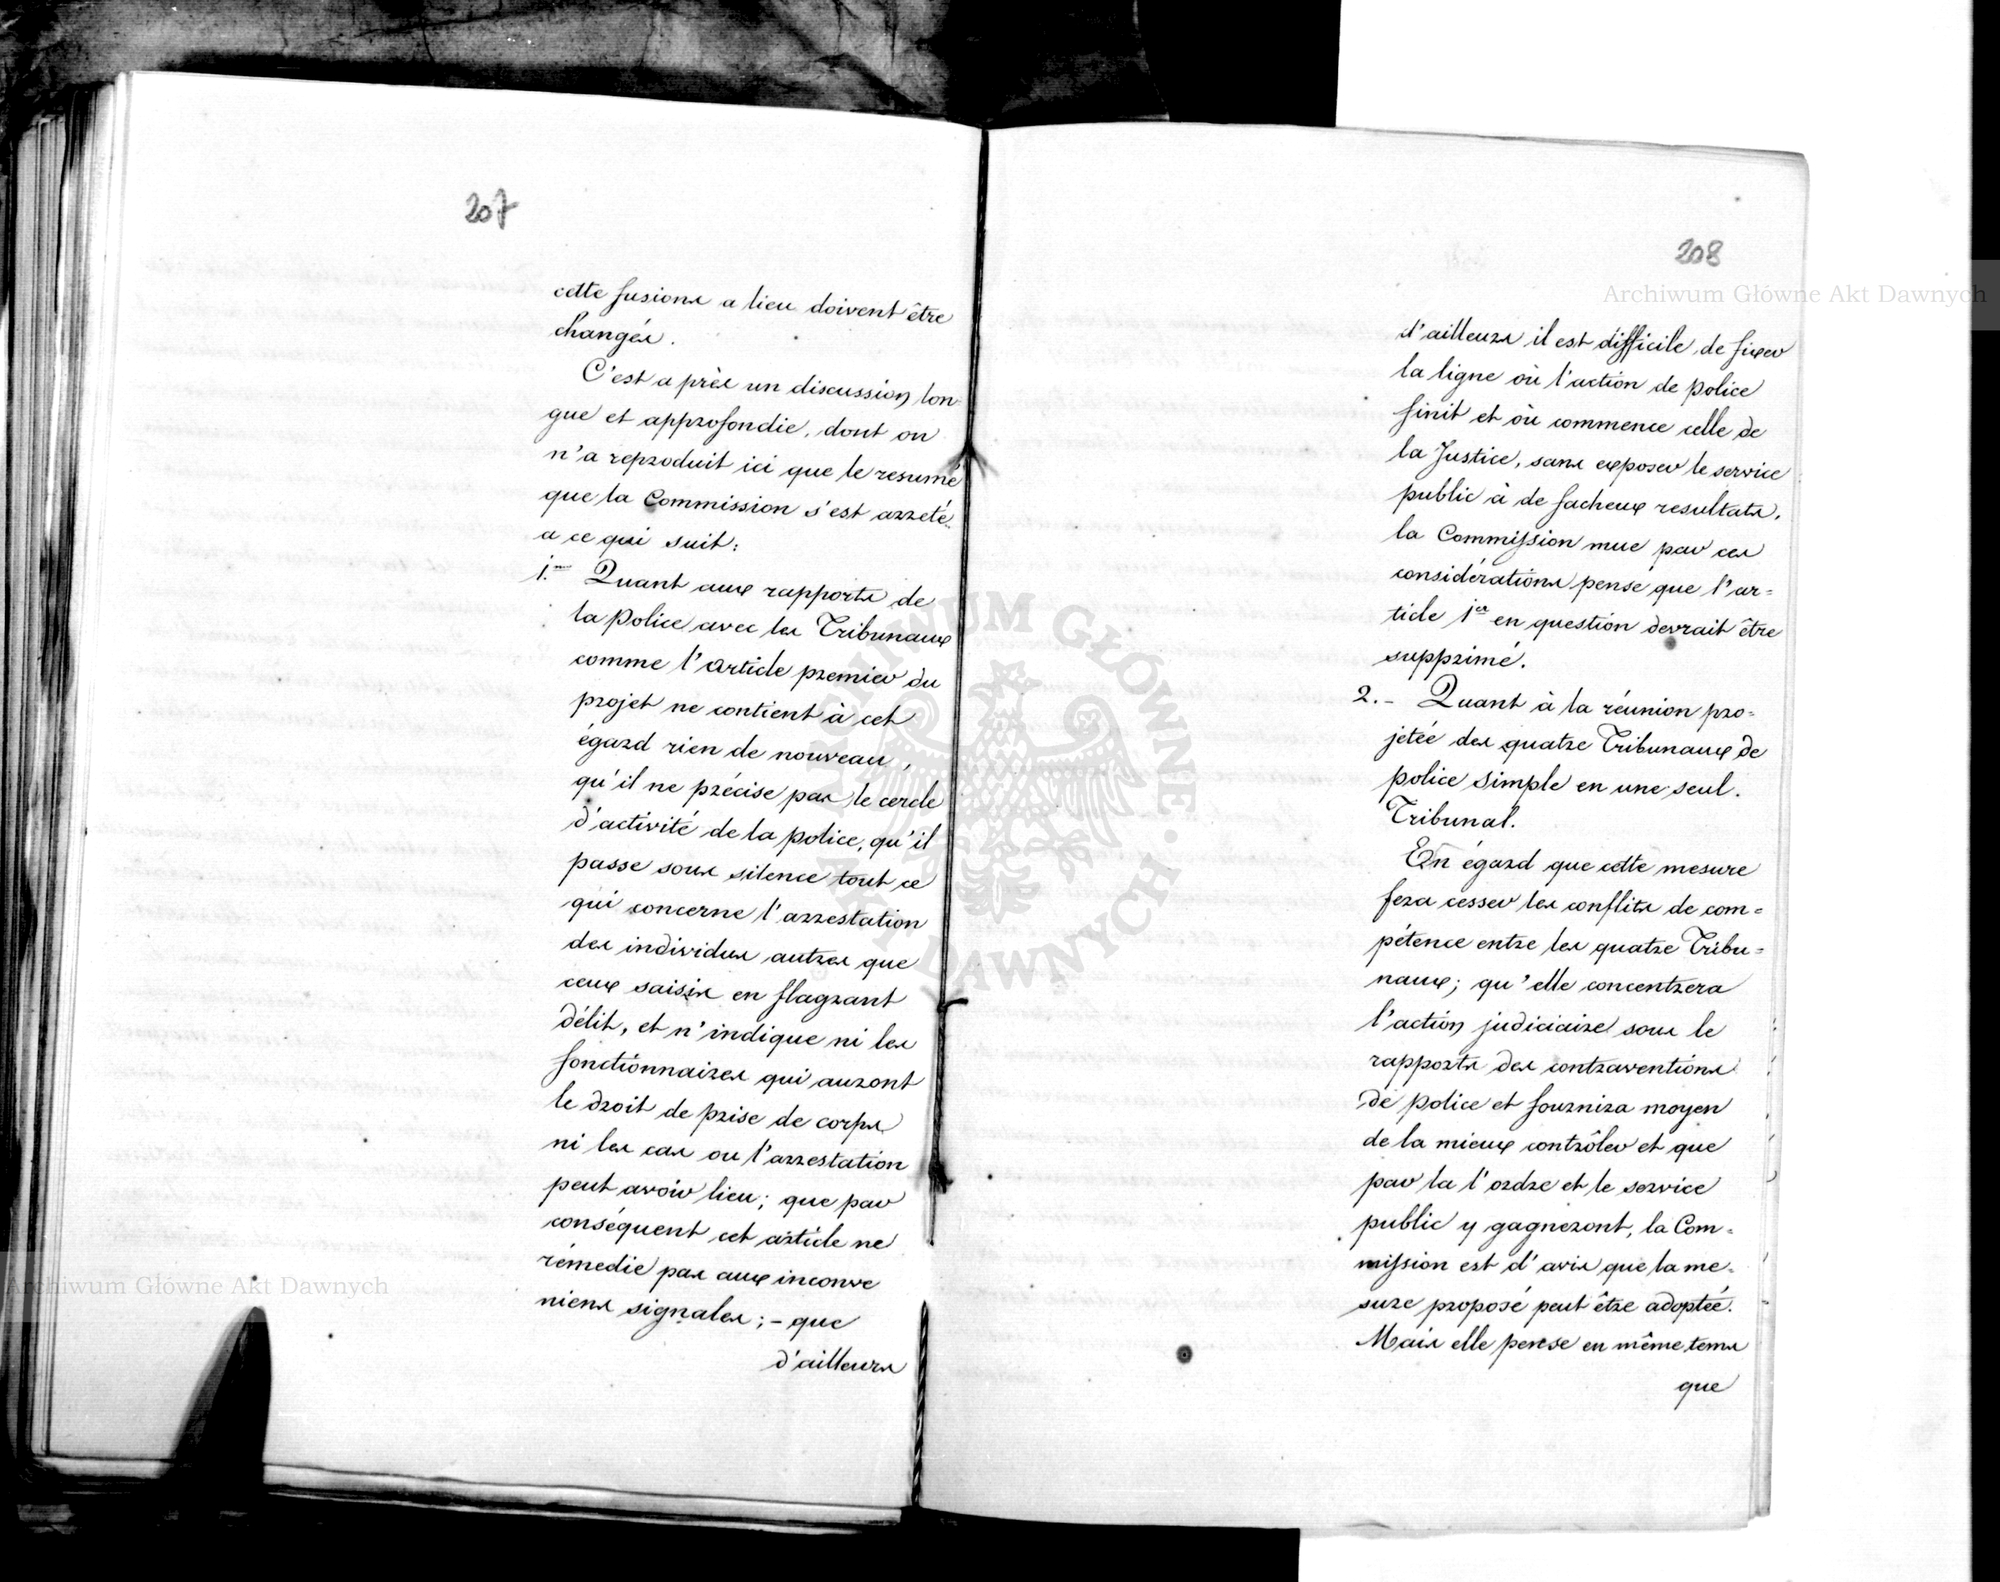 207
cette fusions a lieu doivent être
changés.
C'est a près un discussion lon-
gue et approfondie, dont on
n'a reproduit ici que le resumé
que la Commission s'est arreté
a ce qui suit:
1.mo Quant aux rapports de
la police avec les Tribunaux
comme l'article premier du
projet ne contient à cet
égard rien de nouveau,
qu'il ne précise pas le cercle
d'activité de la police, qu'il
passe sous silence tout ce
qui concerne l'arrestation
des individus autres que
ceux saisis en flagrant
délit, et n'indique ni les
fonctionnaires qui auront
le droit de prise de corps
ni les cas ou l'arrestation
peut avoir lieu; que par
conséquent cet article ne
rémedie pas aux inconve
niens signales; - que
d'ailleurs
208
d'ailleurs il est difficile de fixer
la ligne où l'action de police
finit et où commence celle de
la Justice, sans exposer le service
public à de facheux resultats,
la Commission mue par ces
considérations pense que l'ar=
ticle 1er en question devrait être
supprimé.
2.- Quant à la réunion pro=
jetée des quatre Tribunaux de
police simple en une seul.
Tribunal.
En égard que cette mesure
fera cesser les conflits de com=
pétence entre les quatre Tribu=
naux; qu'elle concentrera
l'action judiciaire sous le
rapports des contraventions
de police et fournira moyen
de la mieux contrôler et que
par la l'ordre et le service
public y gagneront, la Com=
mission est d'avis que la me=
sure proposé peut être adoptée.
Mais elle pense en même tems
que
Archiwum Główne Akt Dawnych
Archiwum Główne Akt Dawnych
ARCHIWUM GŁÓWNE · AKT DAWNYCH ·